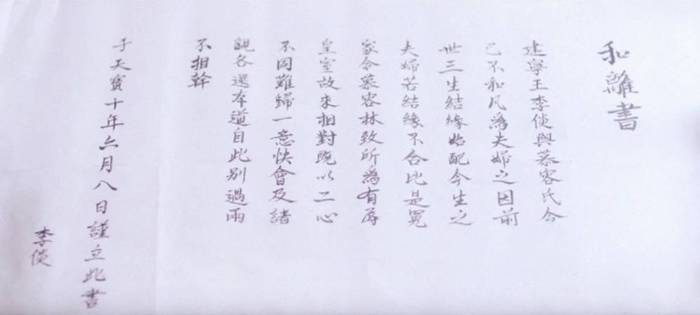 和離書
建寧王李倓與慕容氏合
已不和凡為夫婦之因前
世三生結緣始配今生之
夫婦若結緣不合比是冤
家今慕容林致所為有辱
皇室故來相對既以二心
不同難歸一意快會及諸
親各還本道自此別過兩
不相幹
于天寶十年六月八日謹立此書
李倓